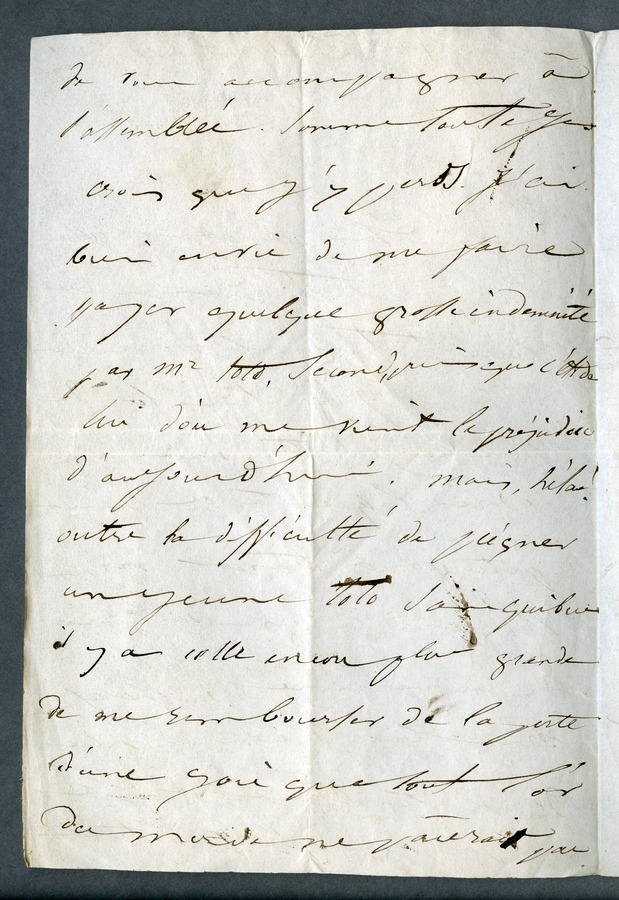 de vous accompagner à
l'assemblée. Somme toute je
crois que j'y perds. J'ai
bien envie de me faire
payer quelque grosse indemnité
par Mr Toto, Second, puisque c'est de
lui d'où me vient le préjudice
d'aujourd'hui. mais, hélas!
outre la difficulté de peigner
un jeune Toto sans quibus
il y a celle encore plus grande
de me rembourser de la perte
d'une joie que tout l'or
du monde ne paierait pas